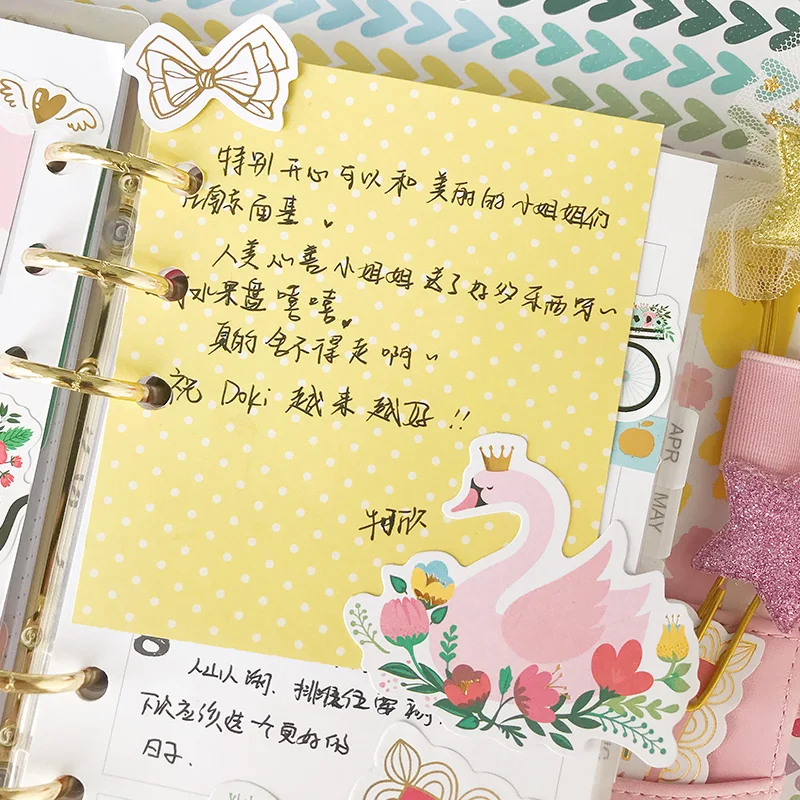 特别开心可以和美丽的小姐姐们
在南京面基。
人美心善小姐姐送了好多东西呀~
水果盘嘻嘻。
真的舍不得走啊~
祝 Doki 越来越好!!
APR
MAY
8
人山人海,排队
下次应该选个更好的
日子.